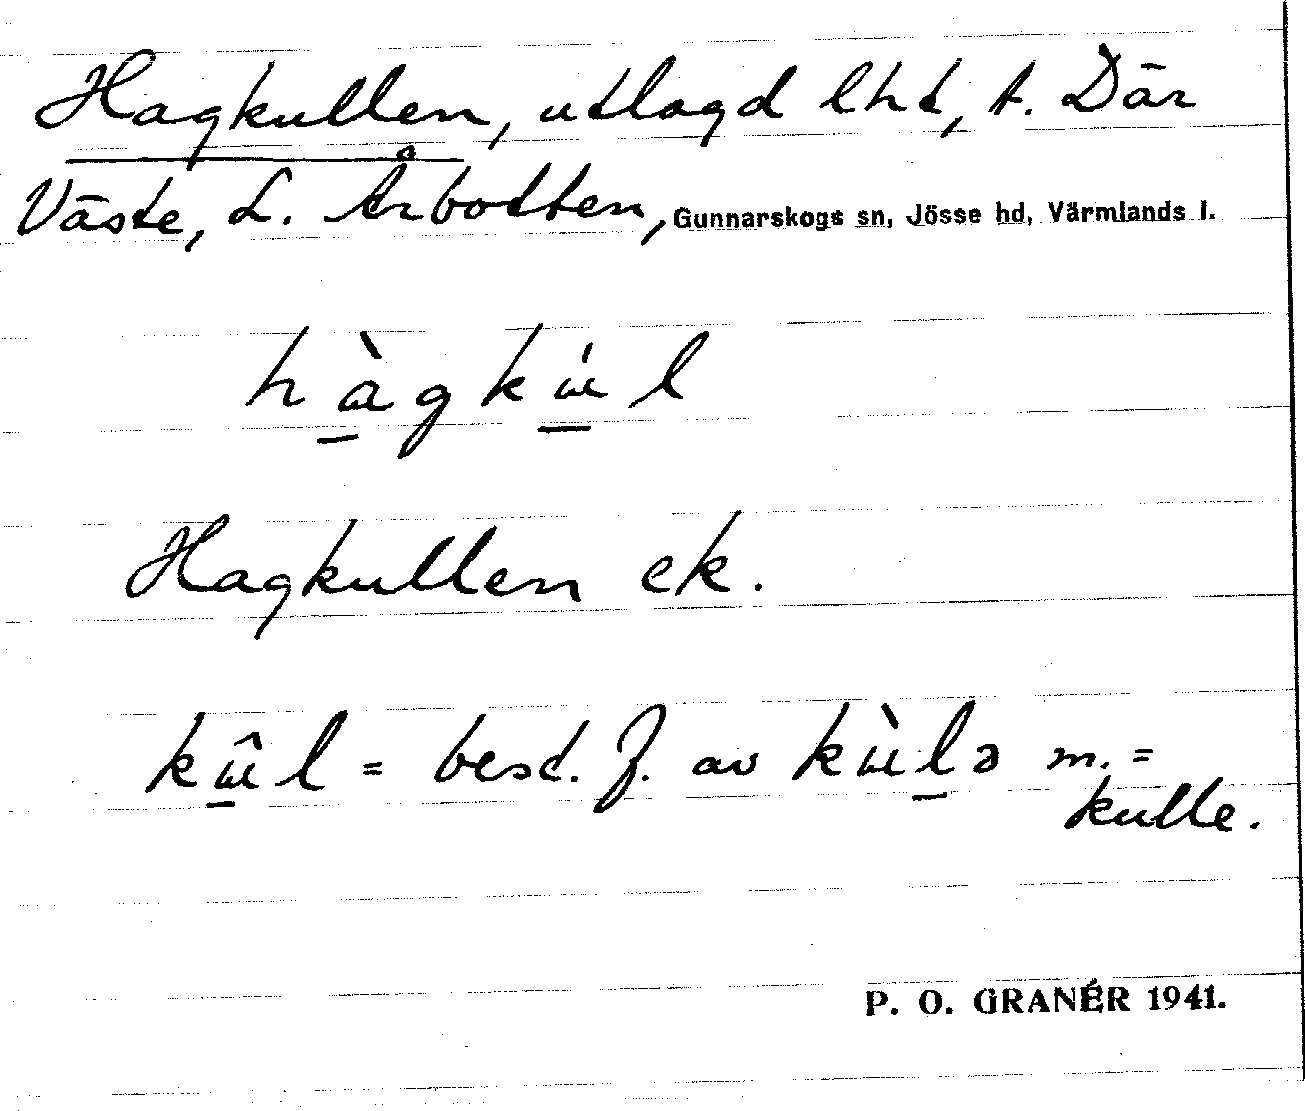 Hagkullen, utlagd lht, t. Där
Väste, L. Årbotten, Gunnarskogs sn, Jösse hd, Värmlands l.
hàgku̍l
Hagkullen ek.
kûl = besd. f. av kùlə m. =
kulle.
P. O. GRANÉR 1941.